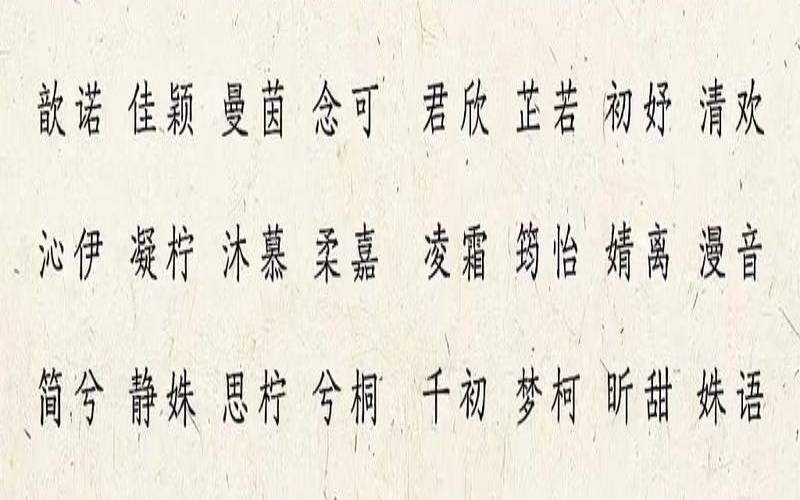 歆诺 佳颖 曼茵 念可 君欣 芷若 初妤 清欢
沁伊 凝柠 沐慕 柔嘉 凌霜 筠怡 婧离 漫音
简兮 静姝 思柠 兮桐 千初 梦柯 昕甜 姝语